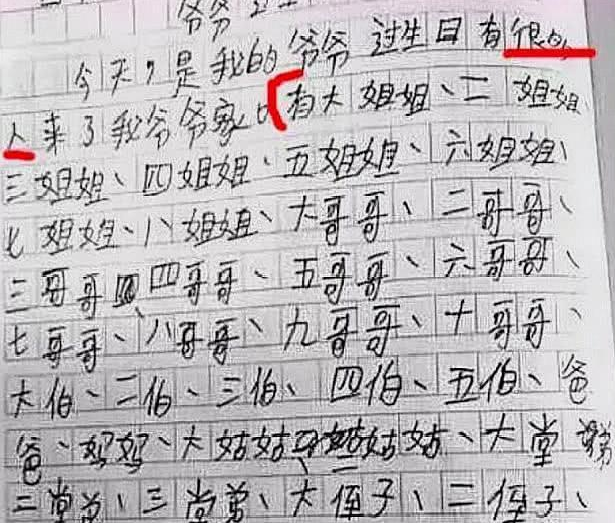 爷爷过生
今天,是我的爷爷过生日有很多
人来了我爷爷家。有大姐姐、二姐姐
三姐姐、四姐姐、五姐姐、六姐姐、
七姐姐、八姐姐、大哥哥、二哥哥、
三哥哥、四哥哥、五哥哥、六哥哥、
七哥哥、八哥哥、九哥哥、十哥哥、
大伯、二伯、三伯、四伯、五伯、爸
爸、妈妈、大姑姑、二姑姑、大堂弟
二堂弟、三堂弟、大侄子、二侄子、